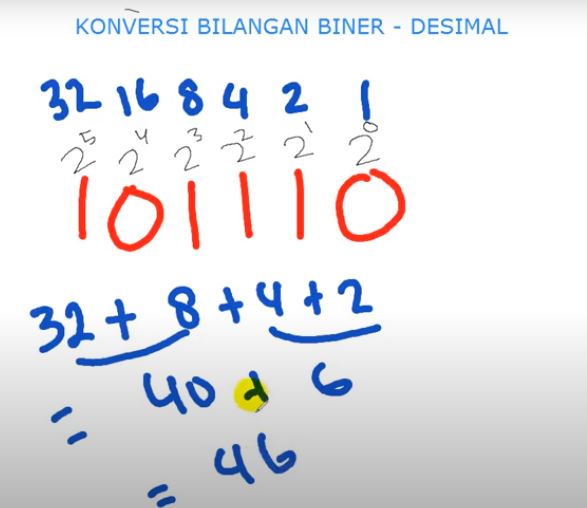 KONVERSI BILANGAN BINER - DESIMAL
32 16 8 4 2 1
2⁵ 2⁴ 2³ 2² 2¹ 2⁰
1 0 1 1 1 0
32 + 8 + 4 + 2
= 40 + 6
= 46